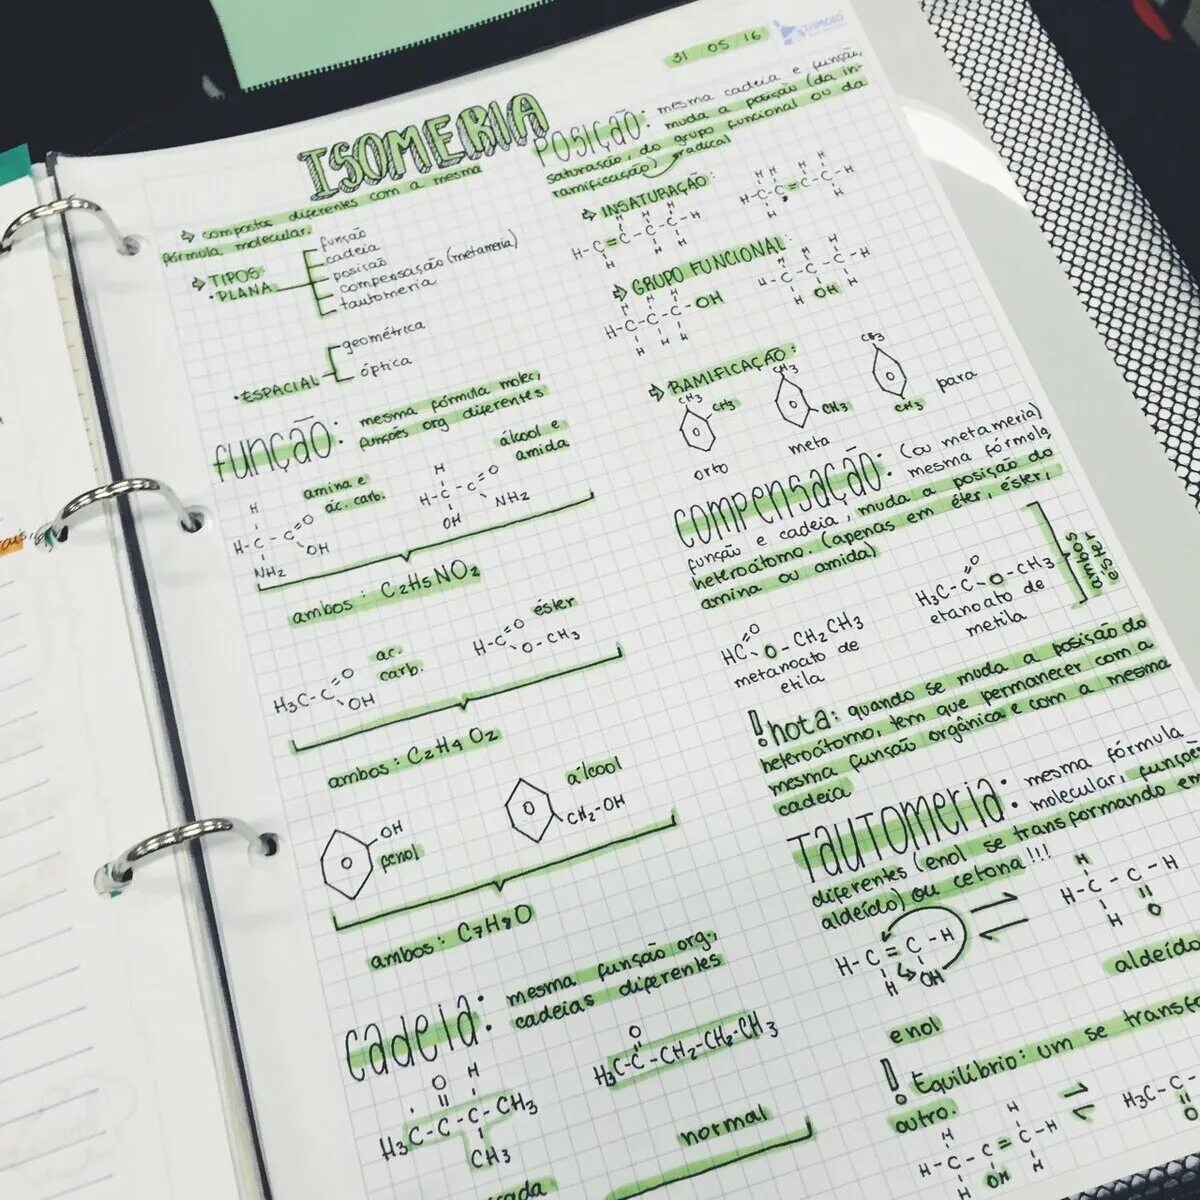 31 05 16
ISOMERIA
→ compostos diferentes com a mesma
fórmula molecular.
→ TIPOS:
• PLANA
função
cadeia
posição
compensação (metameria)
tautomeria
• ESPACIAL
geométrica
óptica
função: mesma fórmula molec,
funções org diferentes
amina e
ác. carb.
H
H-C-C=O
OH
NH2
álcool e
amida
H
H-C-C=O
OH NH2
ambos: C2H5NO2
H3C-C=O
OH
ac.
carb.
H-C=O
O-CH3
éster
ambos: C2H4O2
OH
fenol
álcool
CH2-OH
ambos: C7H8O
cadeia: mesma função org.,
cadeias diferentes
O H
H3C-C-C-CH3
CH3
O
H3C-C-CH2-CH2-CH3
normal
POSIÇÃO: mesma cadeia e função,
muda a posição (da in-
saturação, do grupo funcional ou da
ramificação) radical
→ INSATURAÇÃO:
H H H
H-C=C-C-C-H
H H H
H H H H
H-C-C=C-C-H
H H
→ GRUPO FUNCIONAL:
H H H
H-C-C-C-OH
H H H
H H H
H-C-C-C-H
H OH H
→ RAMIFICAÇÃO:
CH3
CH3
orto
CH3
CH3
meta
CH3
CH3
para
COMPENSAÇÃO: (ou metameria)
mesma fórmula
função e cadeia, muda a posição do
heteroátomo. (apenas em éter, éster,
amina ou amida)
HC=O
O-CH2CH3
metanoato de
etila
H3C-C=O
O-CH3
etanoato de
metila
éster
ambos
! nota: quando se muda a posição do
heteroátomo, tem que permanecer com a
mesma função orgânica e com a mesma
cadeia
TAUTOMERIA: mesma fórmula
molecular, funções
diferentes (enol se transformando em
aldeído) ou cetona!!!
H-C=C-H
H OH
enol
H
H-C-C-H
H O
aldeído
! Equilíbrio: um se transf
outro.
H H
H-C-C=C-H
H OH H
H3C-C-
O